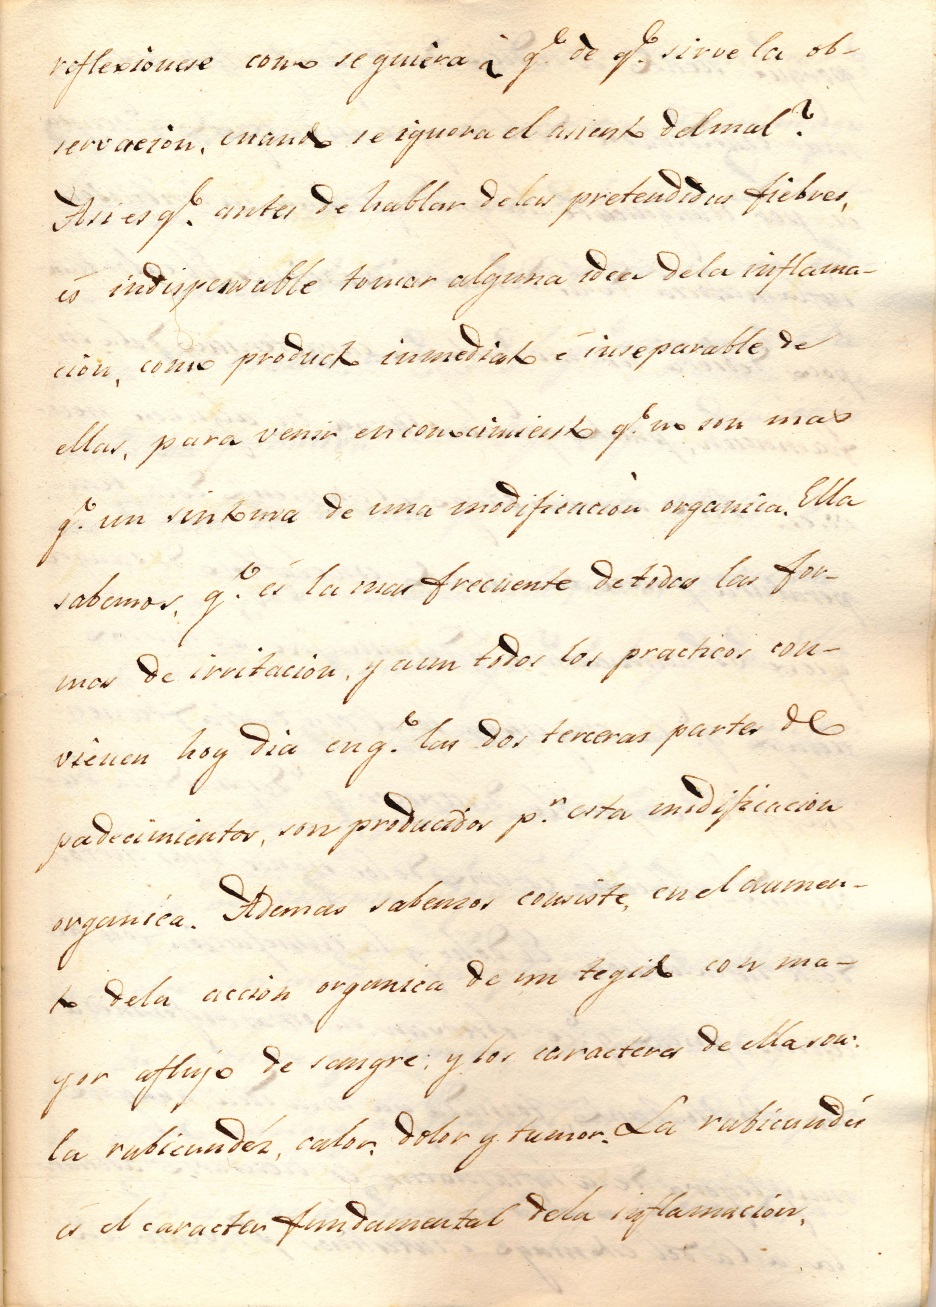 reflexionese como se quiera ¿q.e de q.e sirve la ob-
servación, cuando se ignora el asiento del mal?
Asi es q.e antes de hablar de las pretendidas fiebres,
és indispensable tomar alguna idea de la inflama-
ción, como producto inmediato é inseparable de
ellas, para venir en conocimiento q.e no son mas
q.e un sintoma de una modificación organica. Ella
sabemos, q.e és la mas frecuente de todas las for-
mas de irritación, y aun todos los practicos con-
vienen hoy dia en q.e las dos terceras partes de
padecimientos, son producidos p.r esta modificacion
organica. Ademas sabemos consiste, en el aumen-
to de la acción organica de un tegido con ma-
yor aflujo de sangre; y los caracteres de ella son:
la rubicundéz, calor, dolor y tumor. La rubicundéz
és el caracter fundamental de la inflamación,